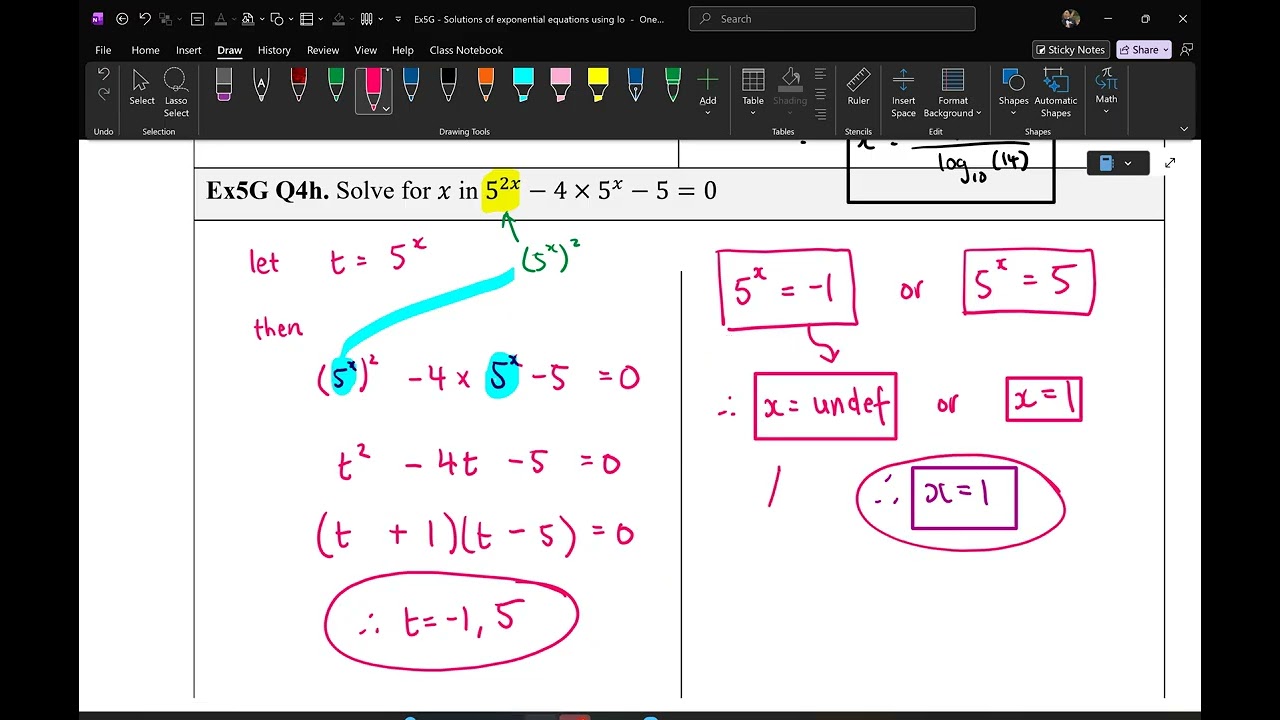 Ex5G - Solutions of exponential equations using lo - One...
Search
File Home Insert Draw History Review View Help Class Notebook
Sticky Notes Share
Select Lasso Select Add Table Shading Ruler Insert Space Format Background Shapes Automatic Shapes Math
Undo Selection Drawing Tools Tables Stencils Edit Shapes
log₁₀(14)
Ex5G Q4h. Solve for x in 5²ˣ − 4 × 5ˣ − 5 = 0
let t = 5ˣ
(5ˣ)²
then
(5ˣ)² − 4 × 5ˣ − 5 = 0
t² − 4t − 5 = 0
(t + 1)(t − 5) = 0
∴ t = −1, 5
5ˣ = −1 or 5ˣ = 5
∴ x = undef or x = 1
∴ x = 1